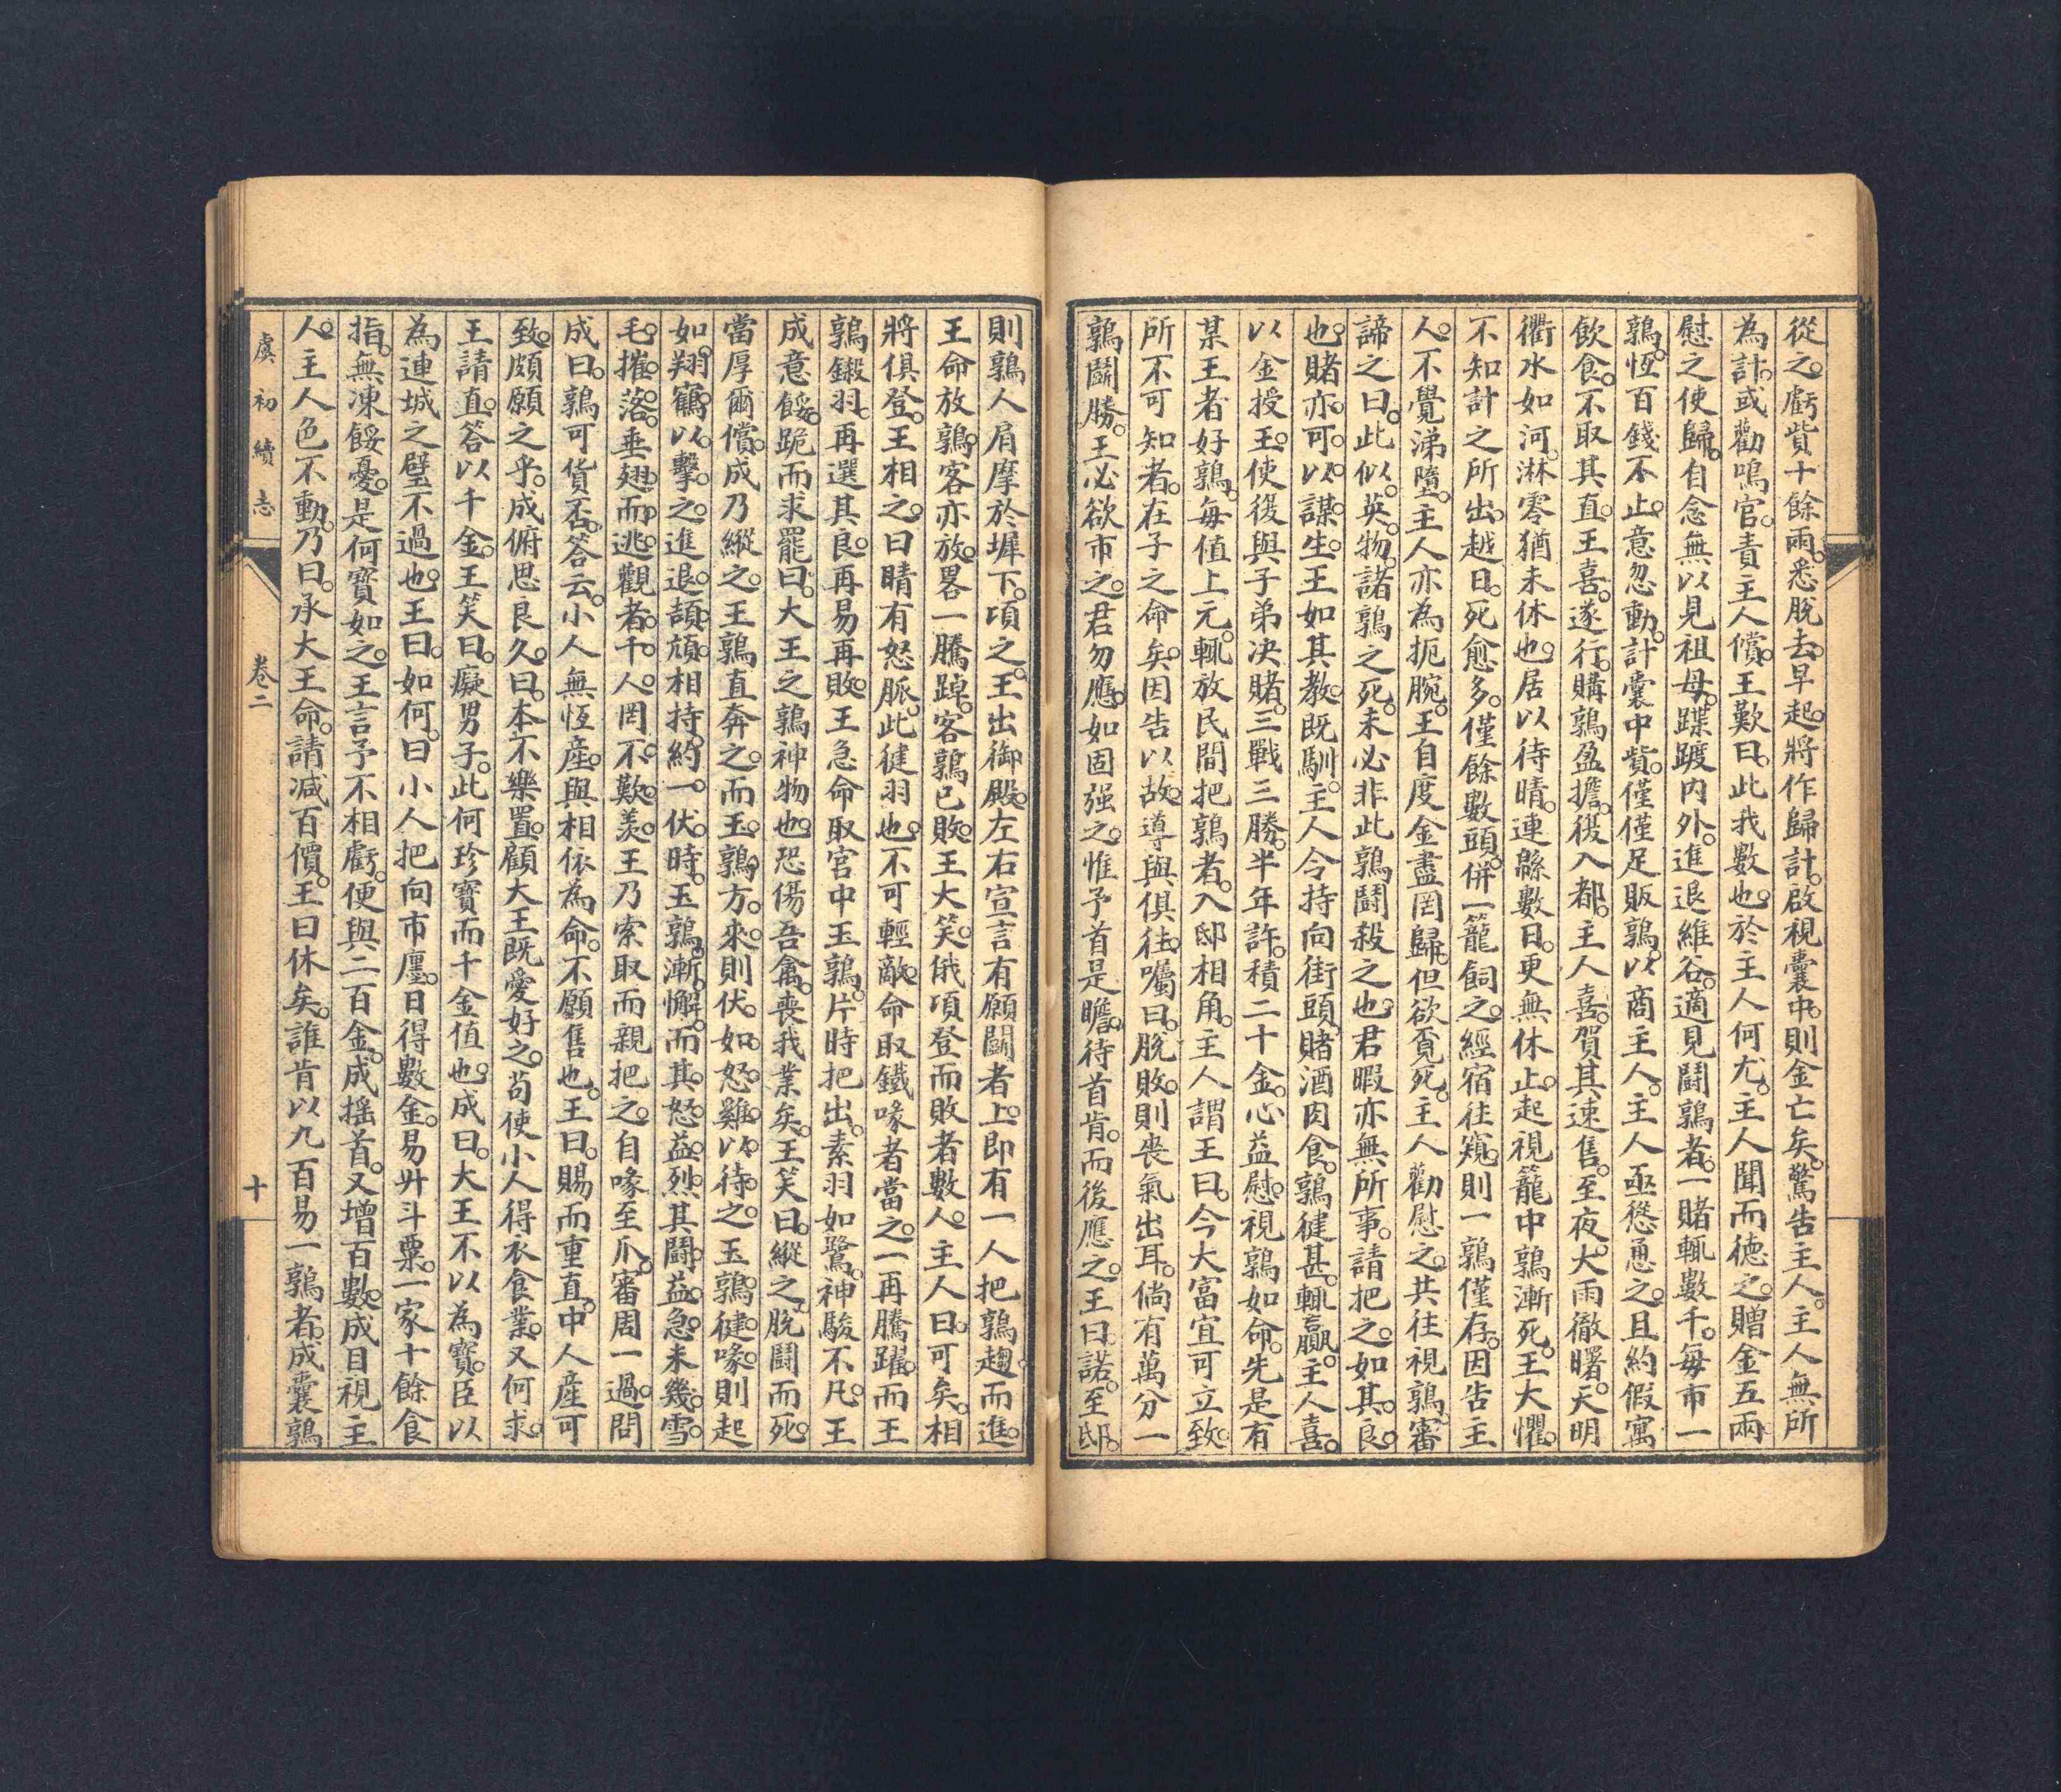 從之。虧貲十餘兩。悉脫去。早起。將作歸計。啟視囊中。則金亡矣。驚告主人。主人無所
為計。或勸鳴官。責主人償。王歎曰。此我數也。於主人何尤。主人聞而德之。贈金五兩
慰之使歸。自念無以見祖母。蹀踱內外。進退維谷。適見鬭鶉者。一賭輒數千。每市一
鶉。恆百錢不止。意忽動。計囊中貲。僅僅足販鶉。以商主人。主人亟慫恿之。且約假寓
飲食。不取其直。王喜。遂行。購鶉盈擔。復入都。主人喜。賀其速售。至夜。大雨徹曙。天明
衢水如河。淋零猶未休也。居以待晴。連緜數日。更無休止。起視籠中鶉漸死。王大懼。
不知計之所出。越日。死愈多。僅餘數頭。併一籠飼之。經宿往窺。則一鶉僅存。因告主
人。不覺涕墮。主人亦為扼腕。王自度金盡罔歸。但欲覓死。主人勸慰之。共往視鶉。審
諦之曰。此似英物。諸鶉之死。未必非此鶉鬭殺之也。君暇亦無所事。請把之。如其良。
也。賭亦可以謀生。王如其教。既馴。主人令持向街頭。賭酒肉食。鶉健甚。輒贏。主人喜。
以金授王。使復與子弟决賭。三戰三勝。半年許。積二十金。心益慰。視鶉如命。先是有
某王者好鶉。每值上元。輒放民間把鶉者。入邸相角。主人謂王曰。今大富宜可立致。
所不可知者。在子之命矣。因告以故。導與俱往。囑曰。脫敗。則喪氣出耳。倘有萬分一
鶉鬭勝。王必欲市之。君勿應。如固强之。惟予首是瞻。待首肯。而後應之。王曰諾。至邸。
則鶉人肩摩於墀下。頃之。王出御殿。左右宣言。有願鬭者上。即有一人把鶉趨而進。
王命放鶉。客亦放。畧一騰踔。客鶉已敗。王大笑。俄頃登而敗者數人。主人曰。可矣。相
將俱登。王相之。曰。睛有怒脈。此健羽也。不可輕敵。命取鐵喙者當之。一再騰躍。而王
鶉鎩羽。再選其良。再易再敗。王急命取宮中玉鶉。片時把出。素羽如鷺。神駿不凡。王
成意餒。跪而求罷曰。大王之鶉神物也。恐傷吾禽。喪我業矣。王笑曰。縱之。脫鬭而死。
當厚爾償。成乃縱之。王鶉直奔之。而玉鶉方來。則伏如怒雞以待之。玉鶉健喙。則起
如翔鶴以擊之。進退頡頏。相持約一伏時。玉鶉漸懈。而其怒益烈。其鬭益急。未幾。雪
毛摧落。垂翅而逃。觀者千人。罔不歎羨。王乃索取而親把之。自喙至爪。審周一過。問
成曰。鶉可貨否。答云。小人無恆產。與相依為命。不願售也。王曰。賜而重直。中人產可
致。頗願之乎。成俯思良久。曰。本不樂置。顧大王既愛好之。苟使小人得衣食業。又何求。
王請直。答以千金。王笑曰。癡男子。此何珍寶。而千金值也。成曰。大王不以為寶。臣以
為連城之璧不過也。王曰。如何。曰。小人把向市廛。日得數金。易升斗粟。一家十餘食
指。無凍餒憂。是何寶如之。王言予不相虧。便與二百金。成搖首。又增百數。成目視主
人。主人色不動。乃曰。承大王命。請減百價。王曰休矣。誰肯以九百易一鶉者。成囊鶉
虞初續志
卷二
十